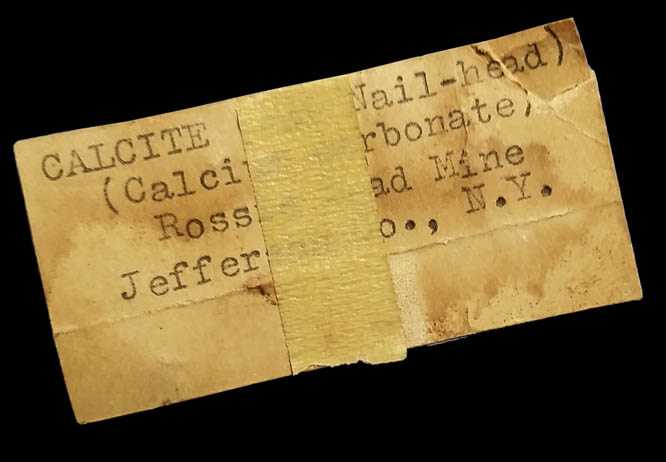 CALCITE Nail-head)
(Calci rbonate,
Ross ad Mine
Jeffer o., N.Y.